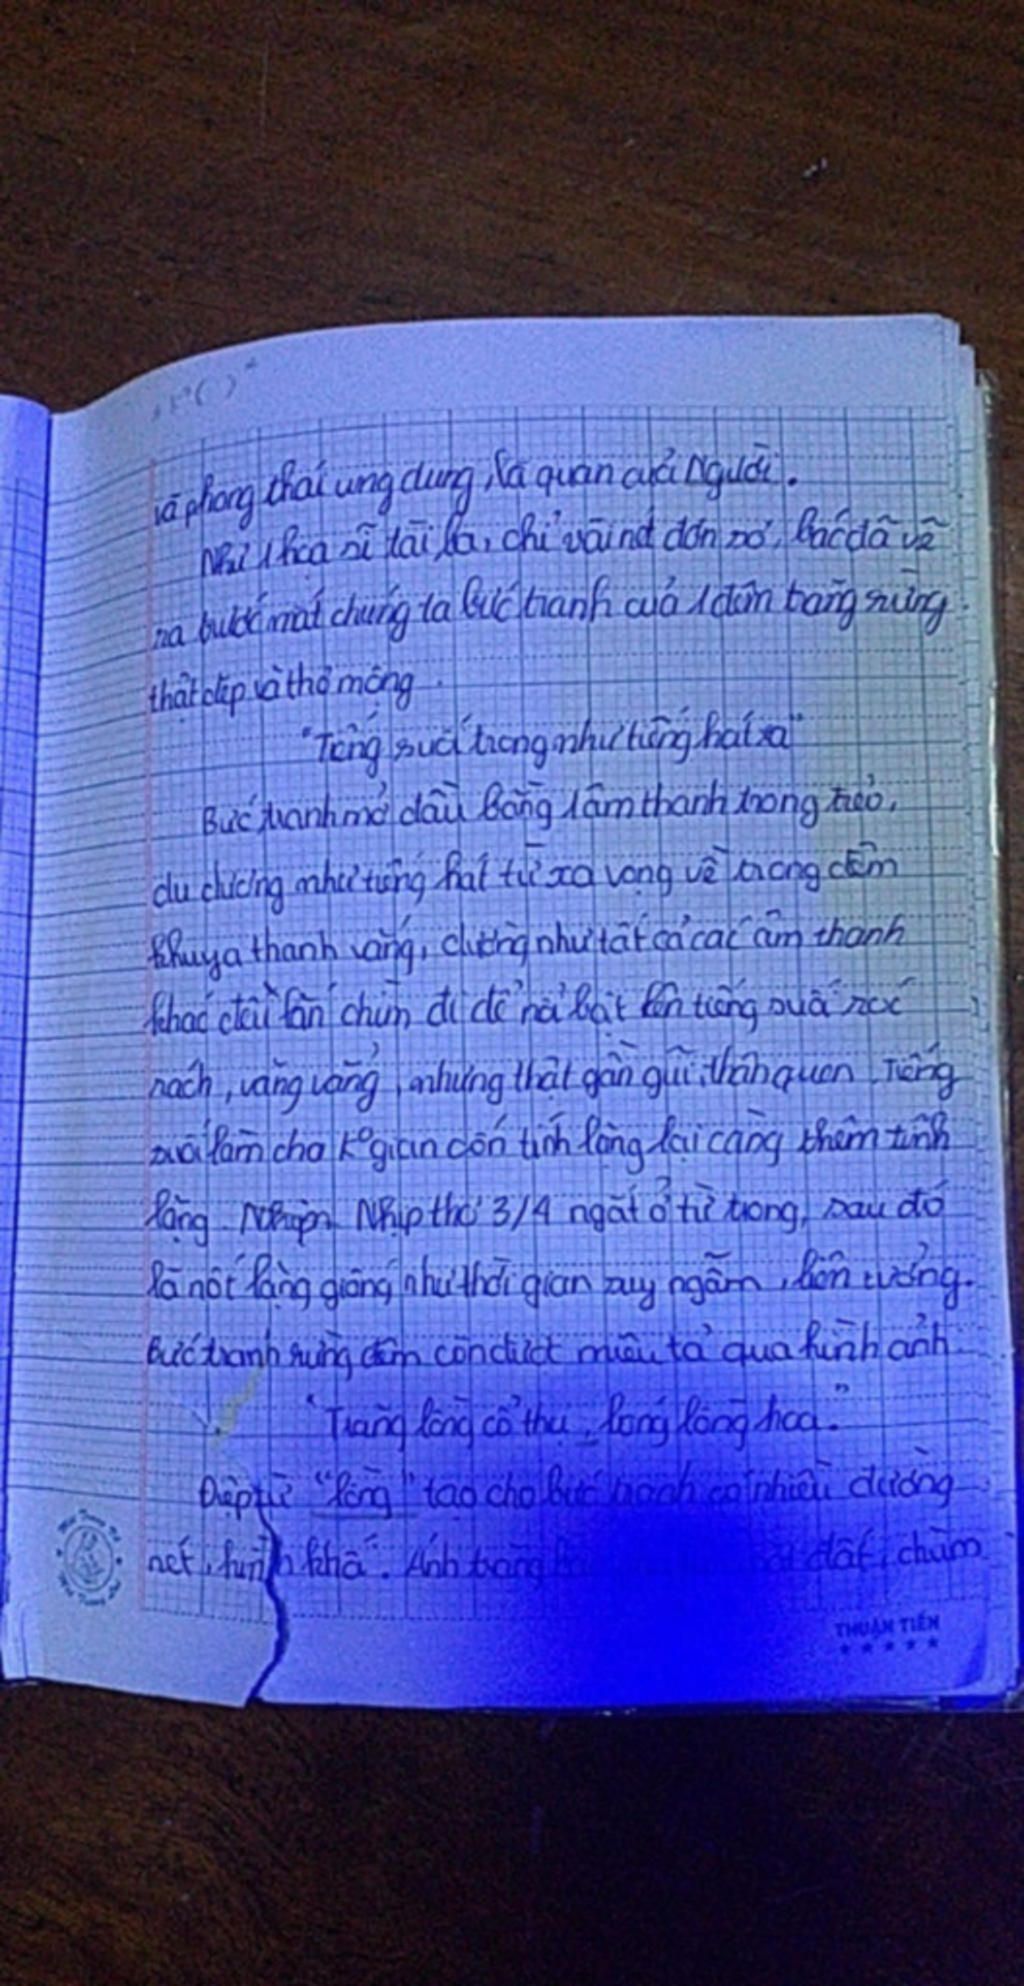 và phong thái ung dung, lạc quan của Người.
Như 1 họa sĩ tài ba, chỉ vài nét đơn sơ, Bác đã vẽ
ra trước mắt chúng ta bức tranh của 1 đêm trăng rừng
thật đẹp và thơ mộng.
"Tiếng suối trong như tiếng hát xa"
Bức tranh mở đầu bằng 1 âm thanh trong trẻo,
du dương như tiếng hát từ xa vọng về trong đêm
khuya thanh vắng, dường như tất cả các âm thanh
khác đều lắn chìm đi để nổi bật lên tiếng suối róc
rách, văng vẳng, nhưng thật gần gũi, thân quen. Tiếng
suối làm cho kº gian vốn tĩnh lặng lại càng thêm tĩnh
lặng. Nhịp thơ 3/4 ngắt ở từ trong, sau đó
là nốt lặng giống như thời gian suy ngẫm, liên tưởng.
Bức tranh rừng đêm còn được miêu tả qua hình ảnh
"Trăng lồng cổ thụ, bóng lồng hoa."
Điệp từ "lồng" tạo cho bức tranh có nhiều đường
nét, hình khố. Ánh trăng đất, chùm
THUẬN TIẾN